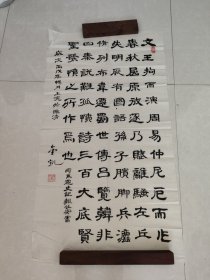 文王拘而演周易仲尼厄而作
春秋屈原放逐乃賦離騷左丘
失明厥有國語孫子臏腳兵灋
脩列不韋遷蜀世傳呂覽韓非
囚秦說難孤憤詩三百大底賢
聖發憤之所作爲也
報任安書
歲次